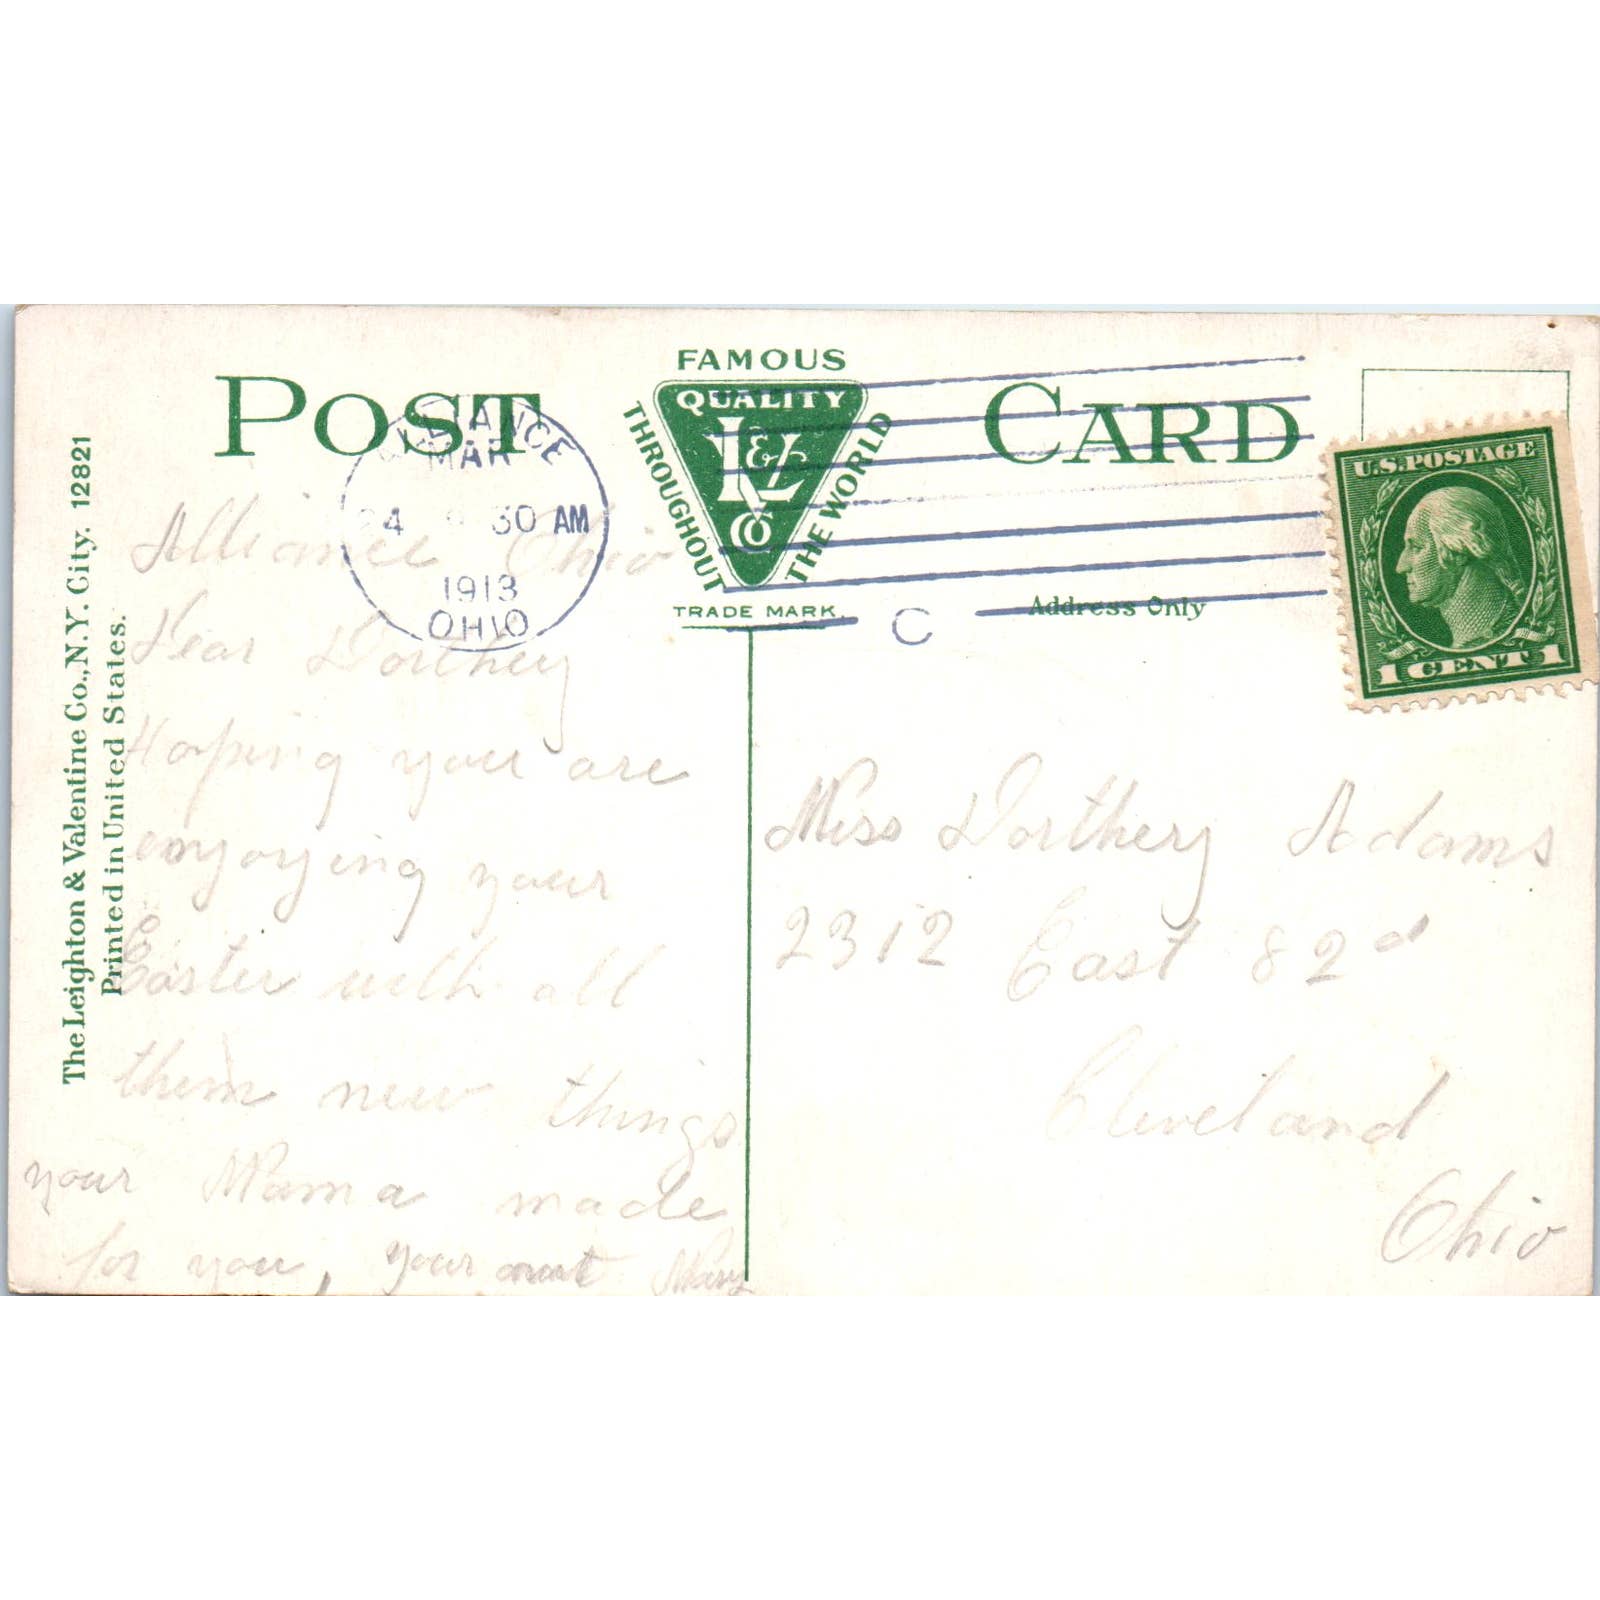 POST CARD
FAMOUS
QUALITY
L & V
Co
THROUGHOUT
THE WORLD
TRADE MARK
ALLIANCE
MAR
24 30 AM
1913
OHIO
C
Address Only
U.S. POSTAGE
1 CENT 1
The Leighton & Valentine Co., N.Y. City. 12821
Printed in United States.
Alliance Ohio
Dear Dorthey
Hoping your are
enyoying your
Easter with all
them new things
your Mama made
for you, your Mary
Miss Dorthery Adams
2312 East 82 d
Cleveland
Ohio